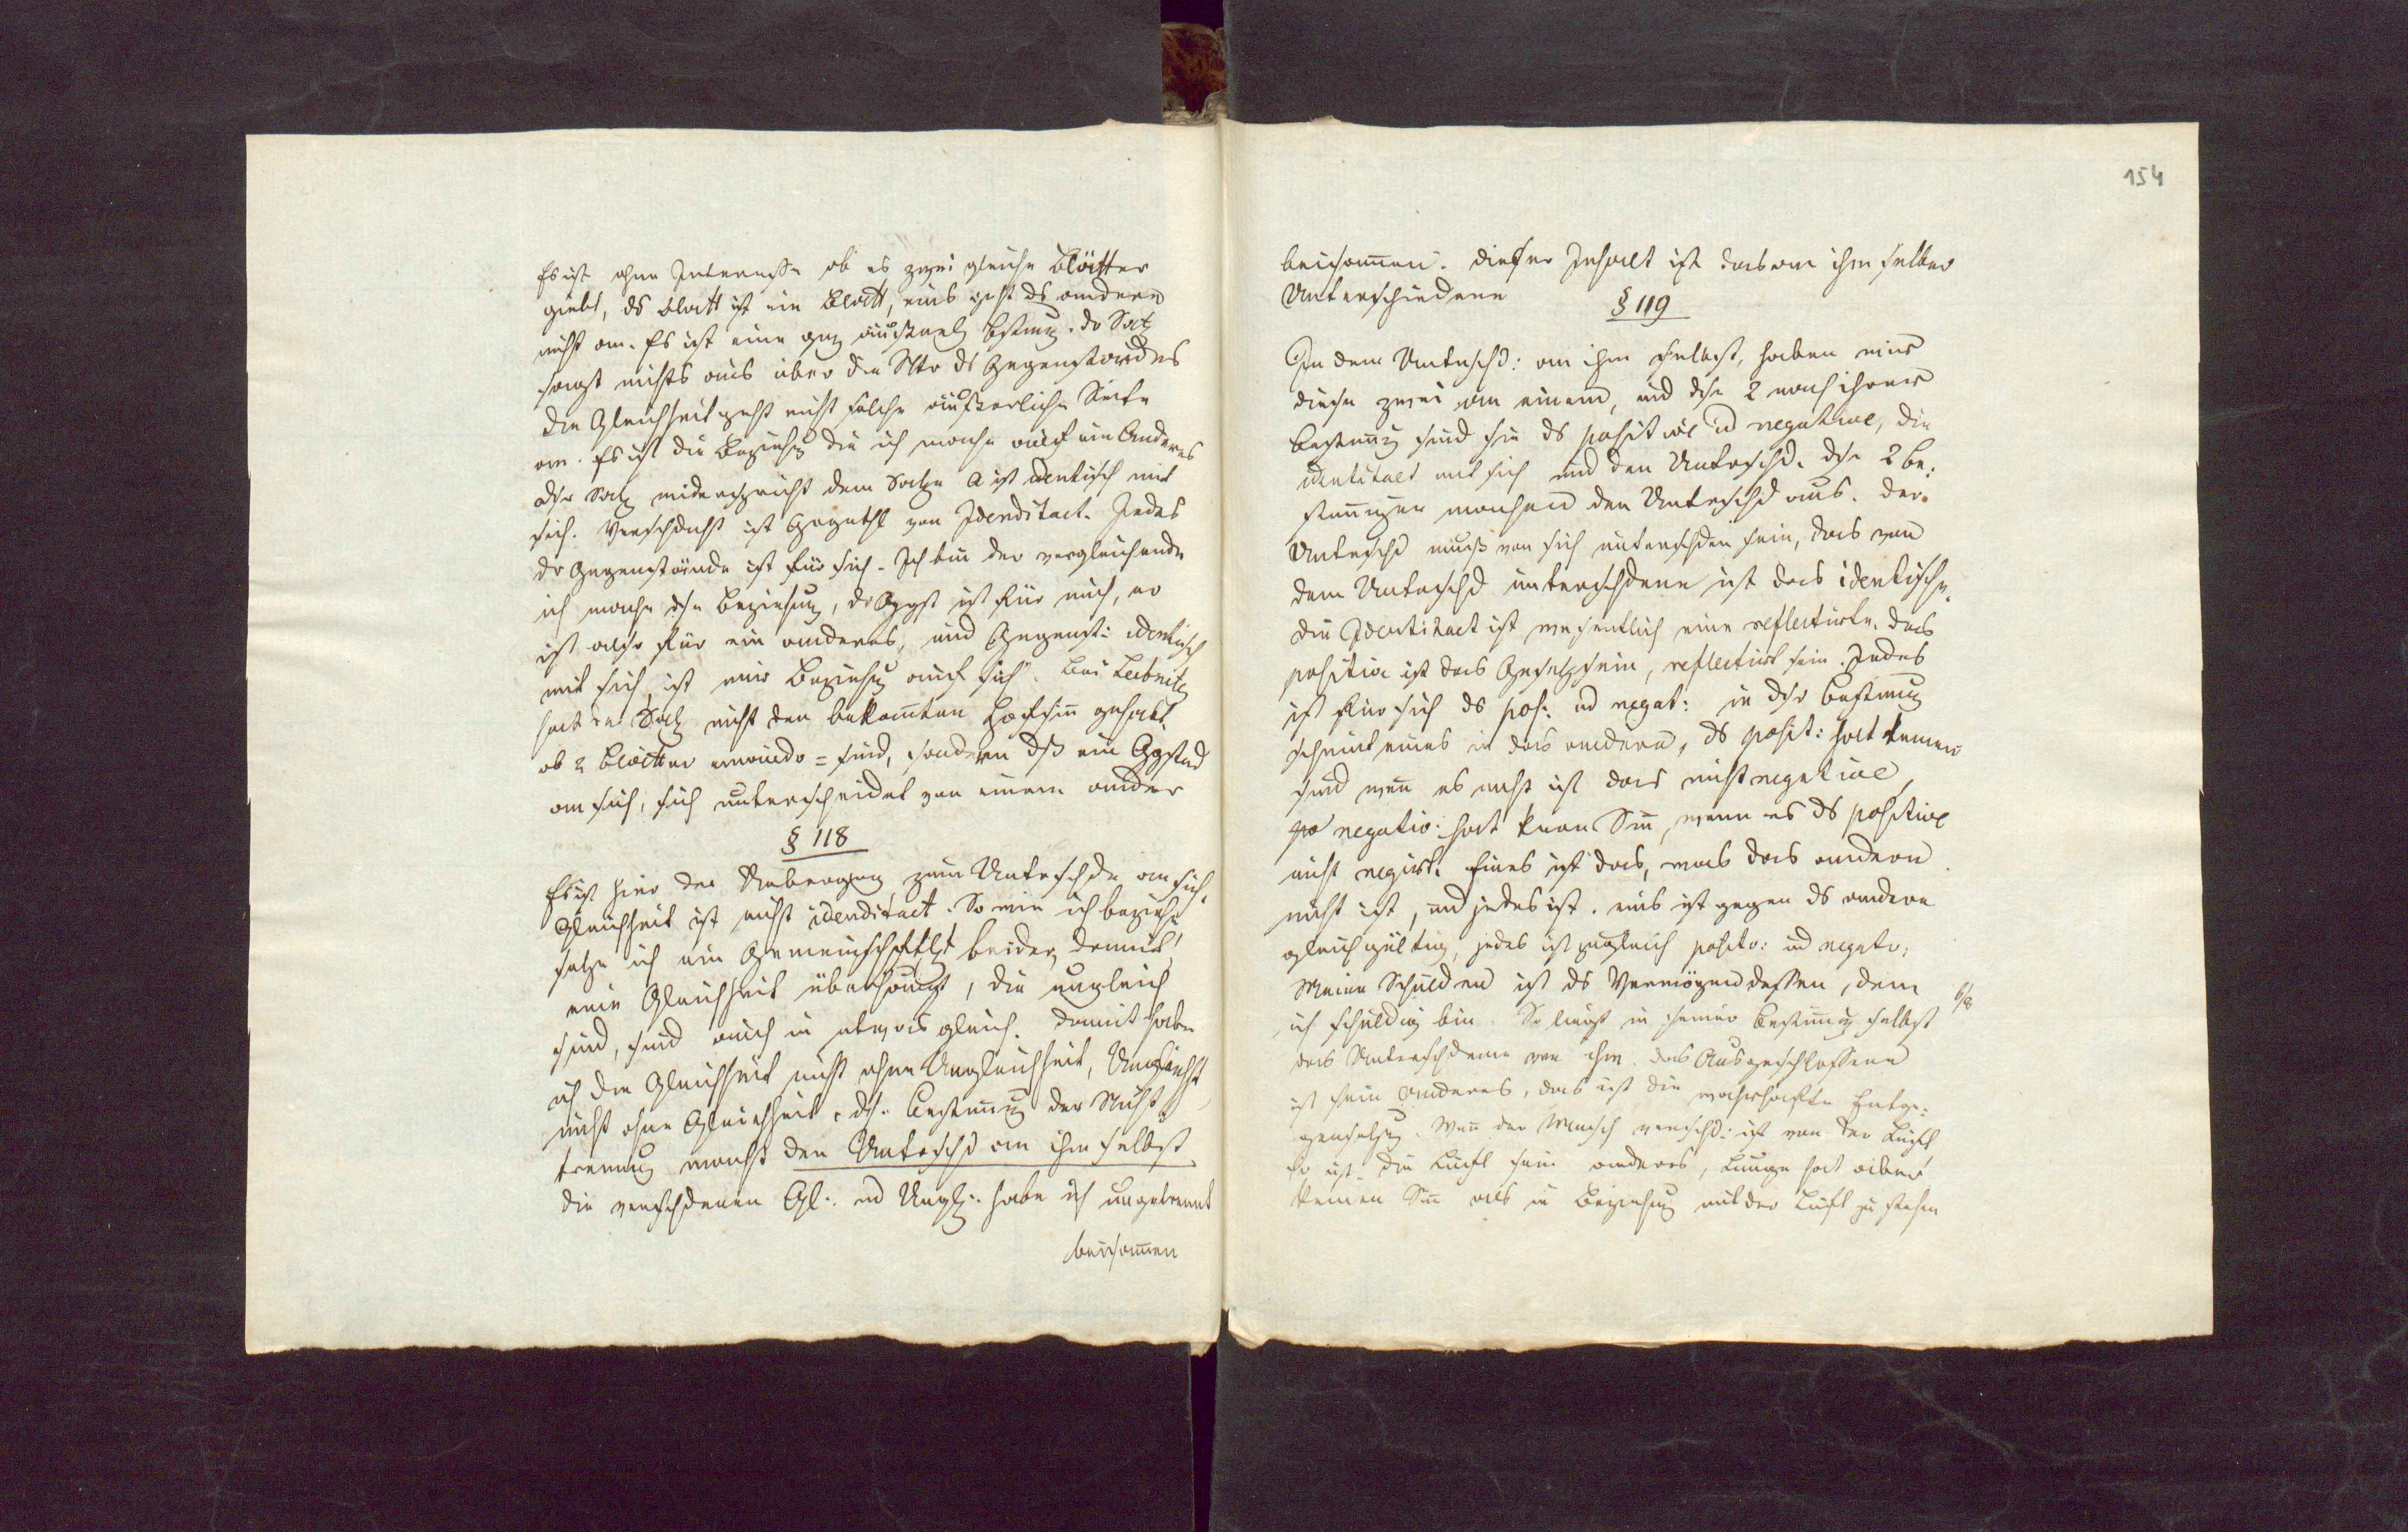 Es ist ohne Interesse ob es zwei gleiche Blätter
giebt, ds Blatt ist ein Blatt, eins geht ds andere
nicht an. Es ist eine gnz äußerl Bstmg. dr Satz
sagt nichts aus über die Ntr ds Gegenstandes
die Gleichheit geht nicht solche äußerliche Seite
an. Es ist die Beziehg die ich mache auf ein Anderes
dsr Satz widerspricht dem Satze A ist identisch mit
sich. Verschdnht ist Ggnthl von Idenditaet. Jedes
dr Gegenstände ist für sich. Ich bin der vergleichende
ich mache dse Beziehung, dr Ggst ist für mich, er
ist also für ein anderes, und Gegenst: identisch
mit sich, ist nur Beziehg auf sich. Bei Leibnitz
hat der Satz nicht den bekannten Hofsinn gehabt
ob 2 Blätter einandr = sind, sondern dß ein Ggstnd
an sich, sich unterscheidet von einem andern
§ 118
Es ist hier der Uebergang zum Unterschde an sich.
Gleichheit ist nicht idenditaet. So wie ich beziehe
setze ich ein Gemeinschftlt beider, damit
eine Gleichheit überhaupt, die ungleich
sind, sind auch in etwas gleich. Damit habe
ich die Gleichheit nicht ohne Ungleichheit, Unglchht
nicht ohne Gleichheit. dse Bestimmg der Nicht
trennung macht den Unterschd an ihm selbst
die verschdenen Gl: und Ungl: habe ich ungetrennt
beisammen
154
beisammen. dieser Inhalt ist das an ihm selber
Unterschiedene
§ 119
In dem Unterschd: an ihm selbst, haben wir
diese zwei an einem, und dse 2 nach ihrer
Bestimmg sind sie ds positive ud negative, die
identitaet mit sich und den Unterschd. dse 2 Be:
stimmungen machen den Unterschd aus. der
Unterschd muß von sich unterschden sein, das von
dem Unterschd unterschdene ist das identische.
die Identitaet ist wesentlich eine reflectirte. das
positive ist das Gesetztsein, reflectirt sein. Jedes
ist für sich ds pos: ud negat: in dsr Bestimmg
scheint eines in das andere, ds posit: hat keinen
sinn wenn es nicht ist das nicht negative,
negativ: hat keinen Sinn, wenn es ds positive
nicht negirt. Eines ist das, was das andere
nicht ist, und jedes ist. eins ist gegen ds andere
gleichgültig, jedes ist zugleich positv: ud negatv:
Meine Schulden ist ds Vermögen dessen, dem
ich schuldig bin. So liegt in seiner Bestimmg selbst
6/8
das Unterschdene von ihm. das Ausgeschlossene
ist sein anderes, das ist die wahrhafte Entge:
gensetzg. Wenn der Mensch verschd: ist von der Luft
so ist die Luft sein anderes, Lunge hat aber
keinen Sinn als in Beziehung mit der Luft zu stehen